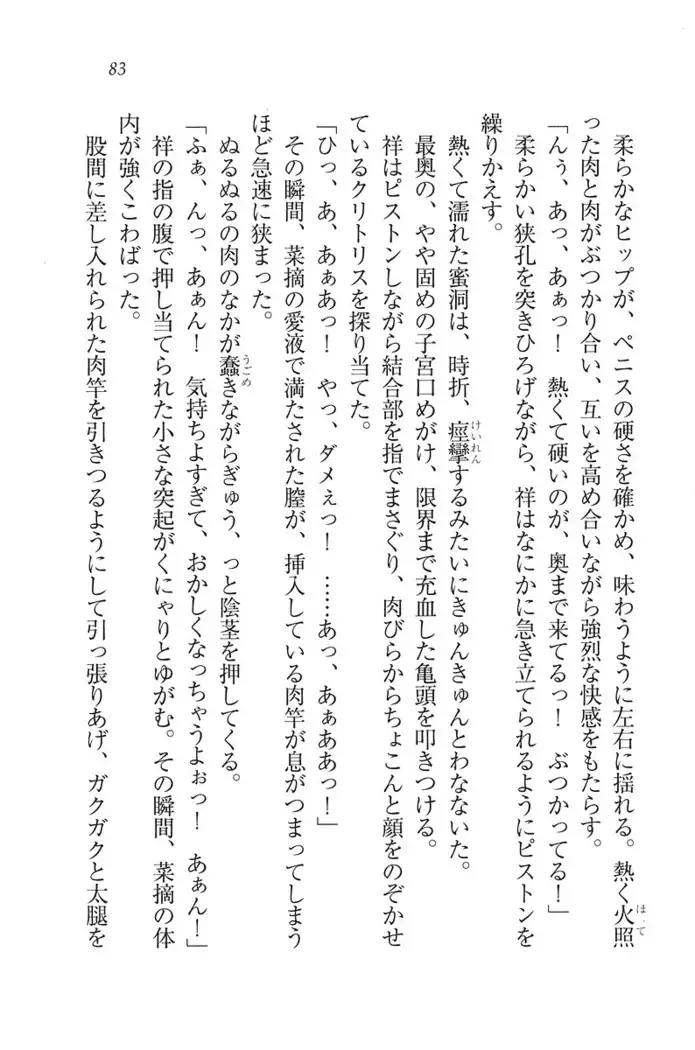 83
柔らかなヒップが、ペニスの硬さを確かめ、味わうように左右に揺れる。熱く火照
った肉と肉がぶつかり合い、互いを高め合いながら強烈な快感をもたらす。
「んぅ、あっ、あぁっ！　熱くて硬いのが、奥まで来てるっ！　ぶつかってる！」
柔らかい狭孔を突きひろげながら、祥はなにかに急き立てられるようにピストンを
繰りかえす。
熱くて濡れた蜜洞は、時折、痙攣するみたいにきゅんきゅんとわなないた。
最奥の、やや固めの子宮口めがけ、限界まで充血した亀頭を叩きつける。
祥はピストンしながら結合部を指でまさぐり、肉びらからちょこんと顔をのぞかせ
ているクリトリスを探り当てた。
「ひっ、あ、あぁあっ！　やっ、ダメぇっ！　……あっ、あぁああっ！」
その瞬間、菜摘の愛液で満たされた膣が、挿入している肉竿が息がつまってしまう
ほど急速に狭まった。
ぬるぬるの肉のなかが蠢きながらぎゅう、っと陰茎を押してくる。
「ふぁ、んっ、あぁん！　気持ちよすぎて、おかしくなっちゃうよぉっ！　あぁん！」
祥の指の腹で押し当てられた小さな突起がくにゃりとゆがむ。その瞬間、菜摘の体
内が強くこわばった。
股間に差し入れられた肉竿を引きつるようにして引っ張りあげ、ガクガクと太腿を